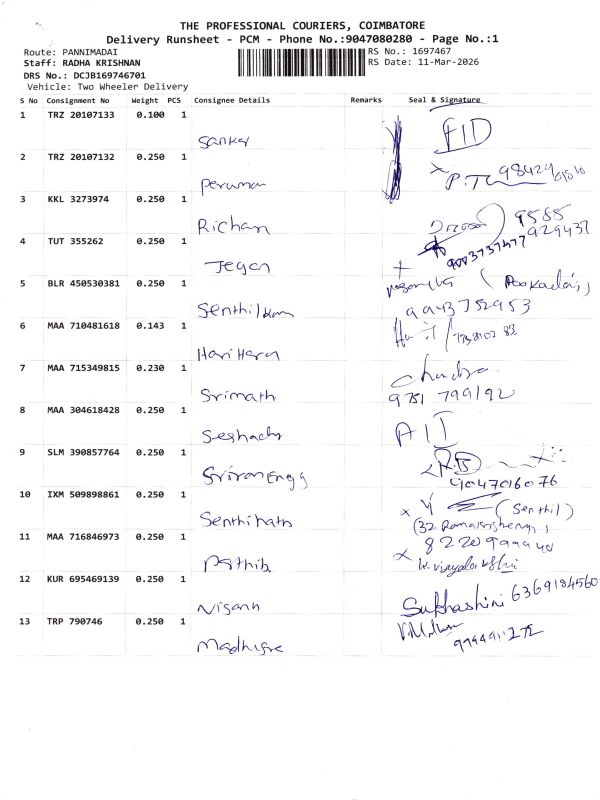 THE PROFESSIONAL COURIERS, COIMBATORE
Delivery Runsheet - PCM - Phone No.:9047080280 - Page No.:1
Route: PANNIMADAI
Staff: RADHA KRISHNAN
DRS No.: DCJB169746701
Vehicle: Two Wheeler Delivery
RS No.: 1697467
RS Date: 11-Mar-2026
S No Consignment No Weight PCS Consignee Details Remarks Seal & Signature
1 TRZ 20107133 0.100 1
Sanker
2 TRZ 20107132 0.250 1
Peruman
3 KKL 3273974 0.250 1
Richan 9585
929437
4 TUT 355262 0.250 1
Jegan
5 BLR 450530381 0.250 1
Senthilkum 9943752953
6 MAA 710481618 0.143 1
Hariharan
7 MAA 715349815 0.230 1 Chandra
Srimath 9751 799192
8 MAA 304618428 0.250 1
Seshachs AII
9 SLM 390857764 0.250 1
Sriram Engg 9047016076
10 IXM 509898861 0.250 1 (Senthil)
Senthilnath
11 MAA 716846973 0.250 1
Parthib
12 KUR 695469139 0.250 1
Nisanh Subhashini 6369184560
13 TRP 790746 0.250 1